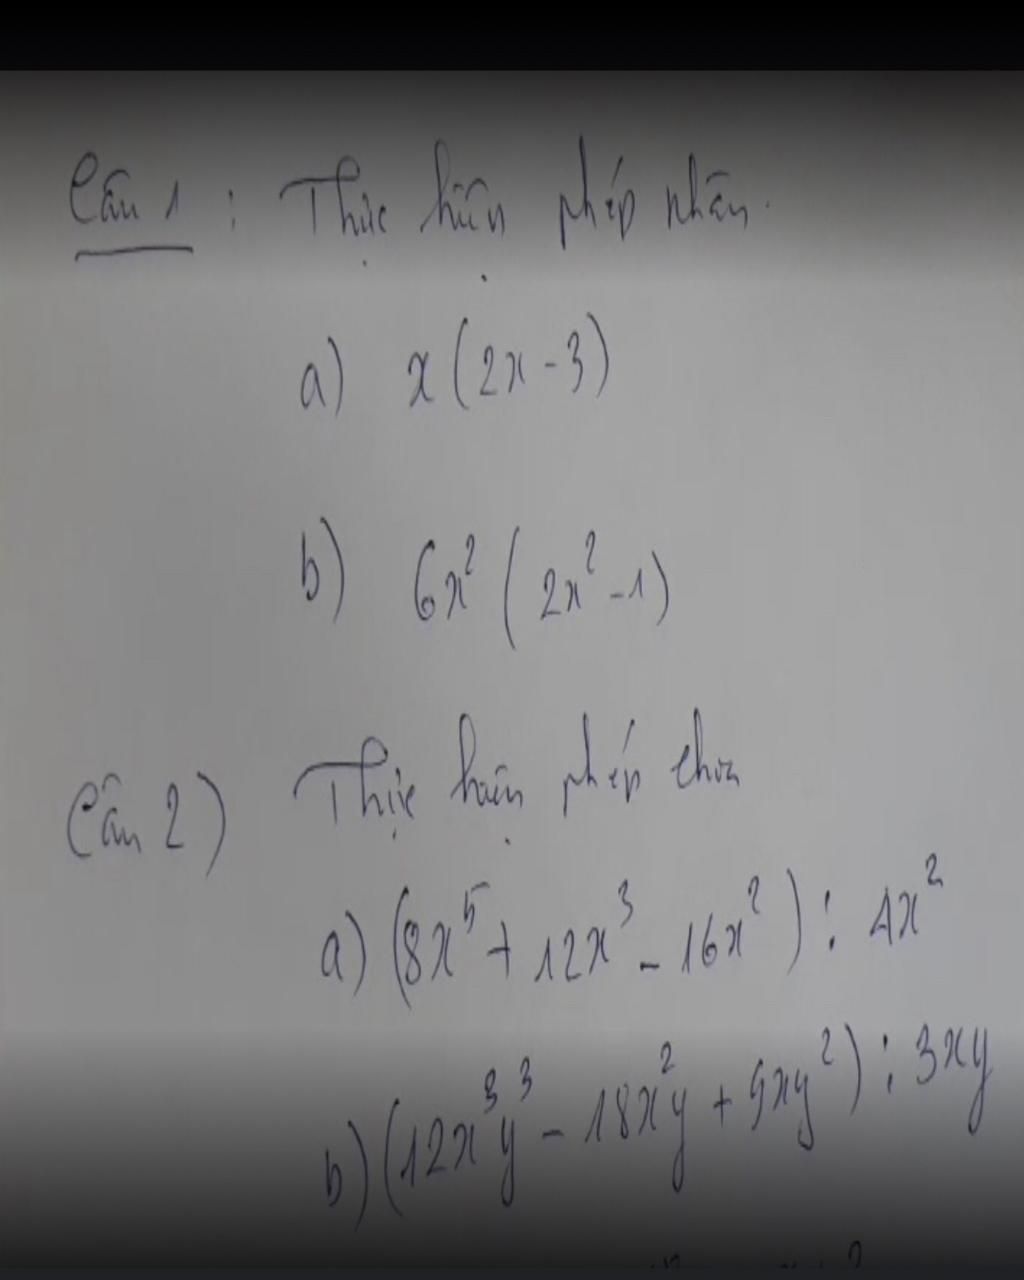 Câu 1 : Thực hiện phép nhân.
a) x(2x-3)
b) 6x² (2x²-1)
Câu 2) Thực hiện phép chia
a) (8x⁵ + 12x³ - 16x²) : 4x²
b) (12x³y³ - 18x²y + 9xy²) : 3xy